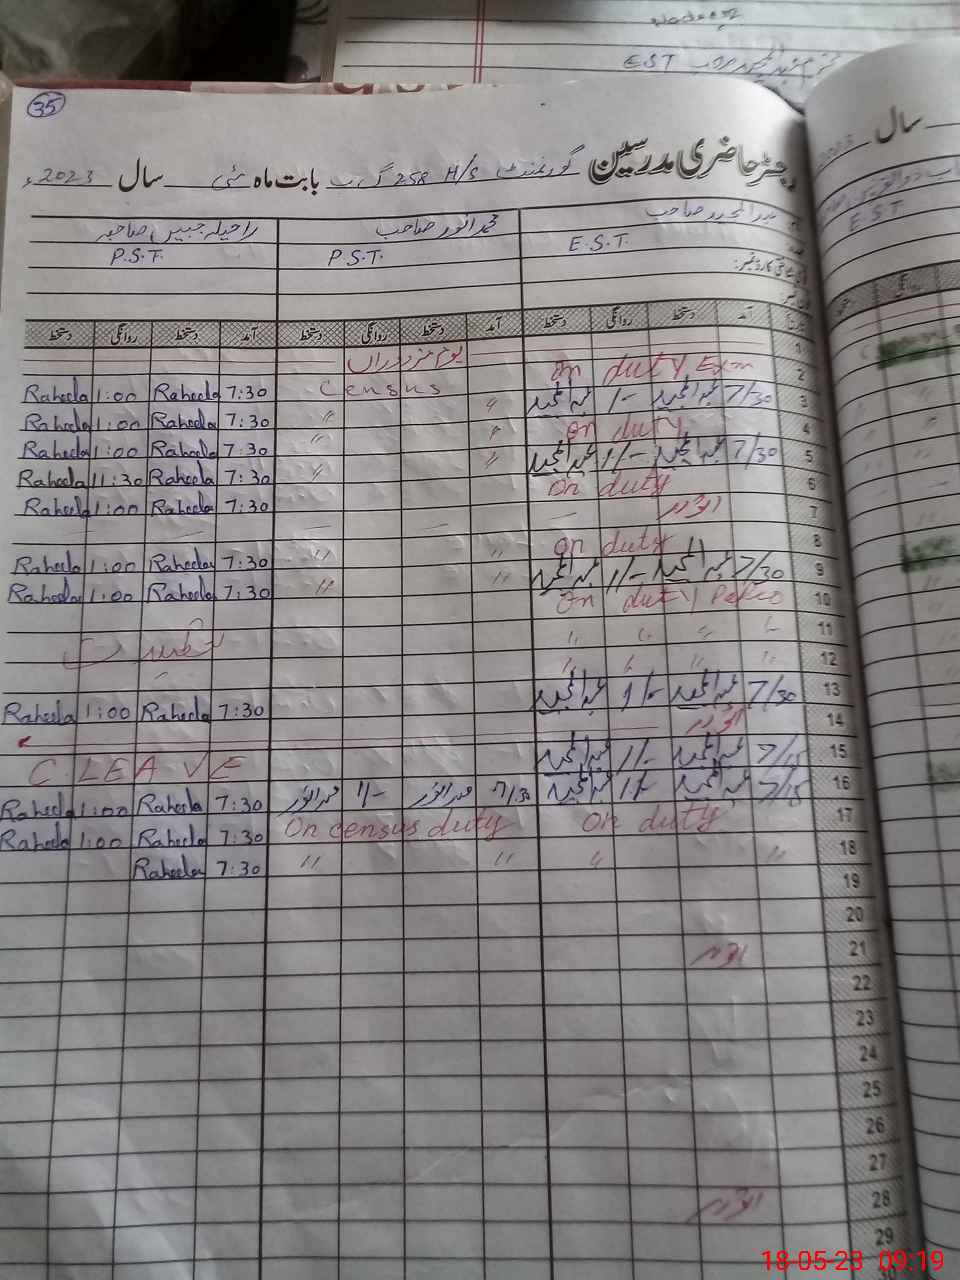 E.S.T
35
رجسٹر حاضری مدرسین گورنمنٹ H/S 258 گ ب بابت ماہ مئی سال 2023ء
محمد انور صاحب راحیلہ جبیں صاحبہ
E.S.T. P.S.T. P.S.T.
آمد دستخط روانگی دستخط آمد دستخط روانگی دستخط آمد دستخط روانگی دستخط
1 یوم مزدوراں
2 on duty Exam Census 7:30 Raheela 1:00 Raheela
3 7/30 عبدالمجید 1/- عبدالمجید " " 7:30 Raheela 1:00 Raheela
4 on duty " " 7:30 Raheela 1:00 Raheela
5 7/30 عبدالمجید 1/- عبدالمجید " " 7:30 Raheela 11:30 Raheela
6 on duty 7:30 Raheela 1:00 Raheela
7 اتوار
8 on duty " " 7:30 Raheela 1:00 Raheela
9 7/30 عبدالمجید 1/- عبدالمجید " " 7:30 Raheela 1:00 Raheela
10 on duty
11 " " " "
12 " " " "
13 7/30 عبدالمجید 1/- عبدالمجید 7:30 Raheela 1:00 Raheela
14 اتوار
15 7/15 عبدالمجید 1/- عبدالمجید C. LEAVE
16 7/15 عبدالمجید 1/- عبدالمجید 7/30 محمد انور 1/- محمد انور 7:30 Raheela 1:00 Raheela
17 on duty On census duty 7:30 Raheela 1:00 Raheela
18 " " " " 7:30 Raheela
19
20
21 اتوار
22
23
24
25
26
27
28 اتوار
29
سال 2023
E.S.T
18-05-23 09:19